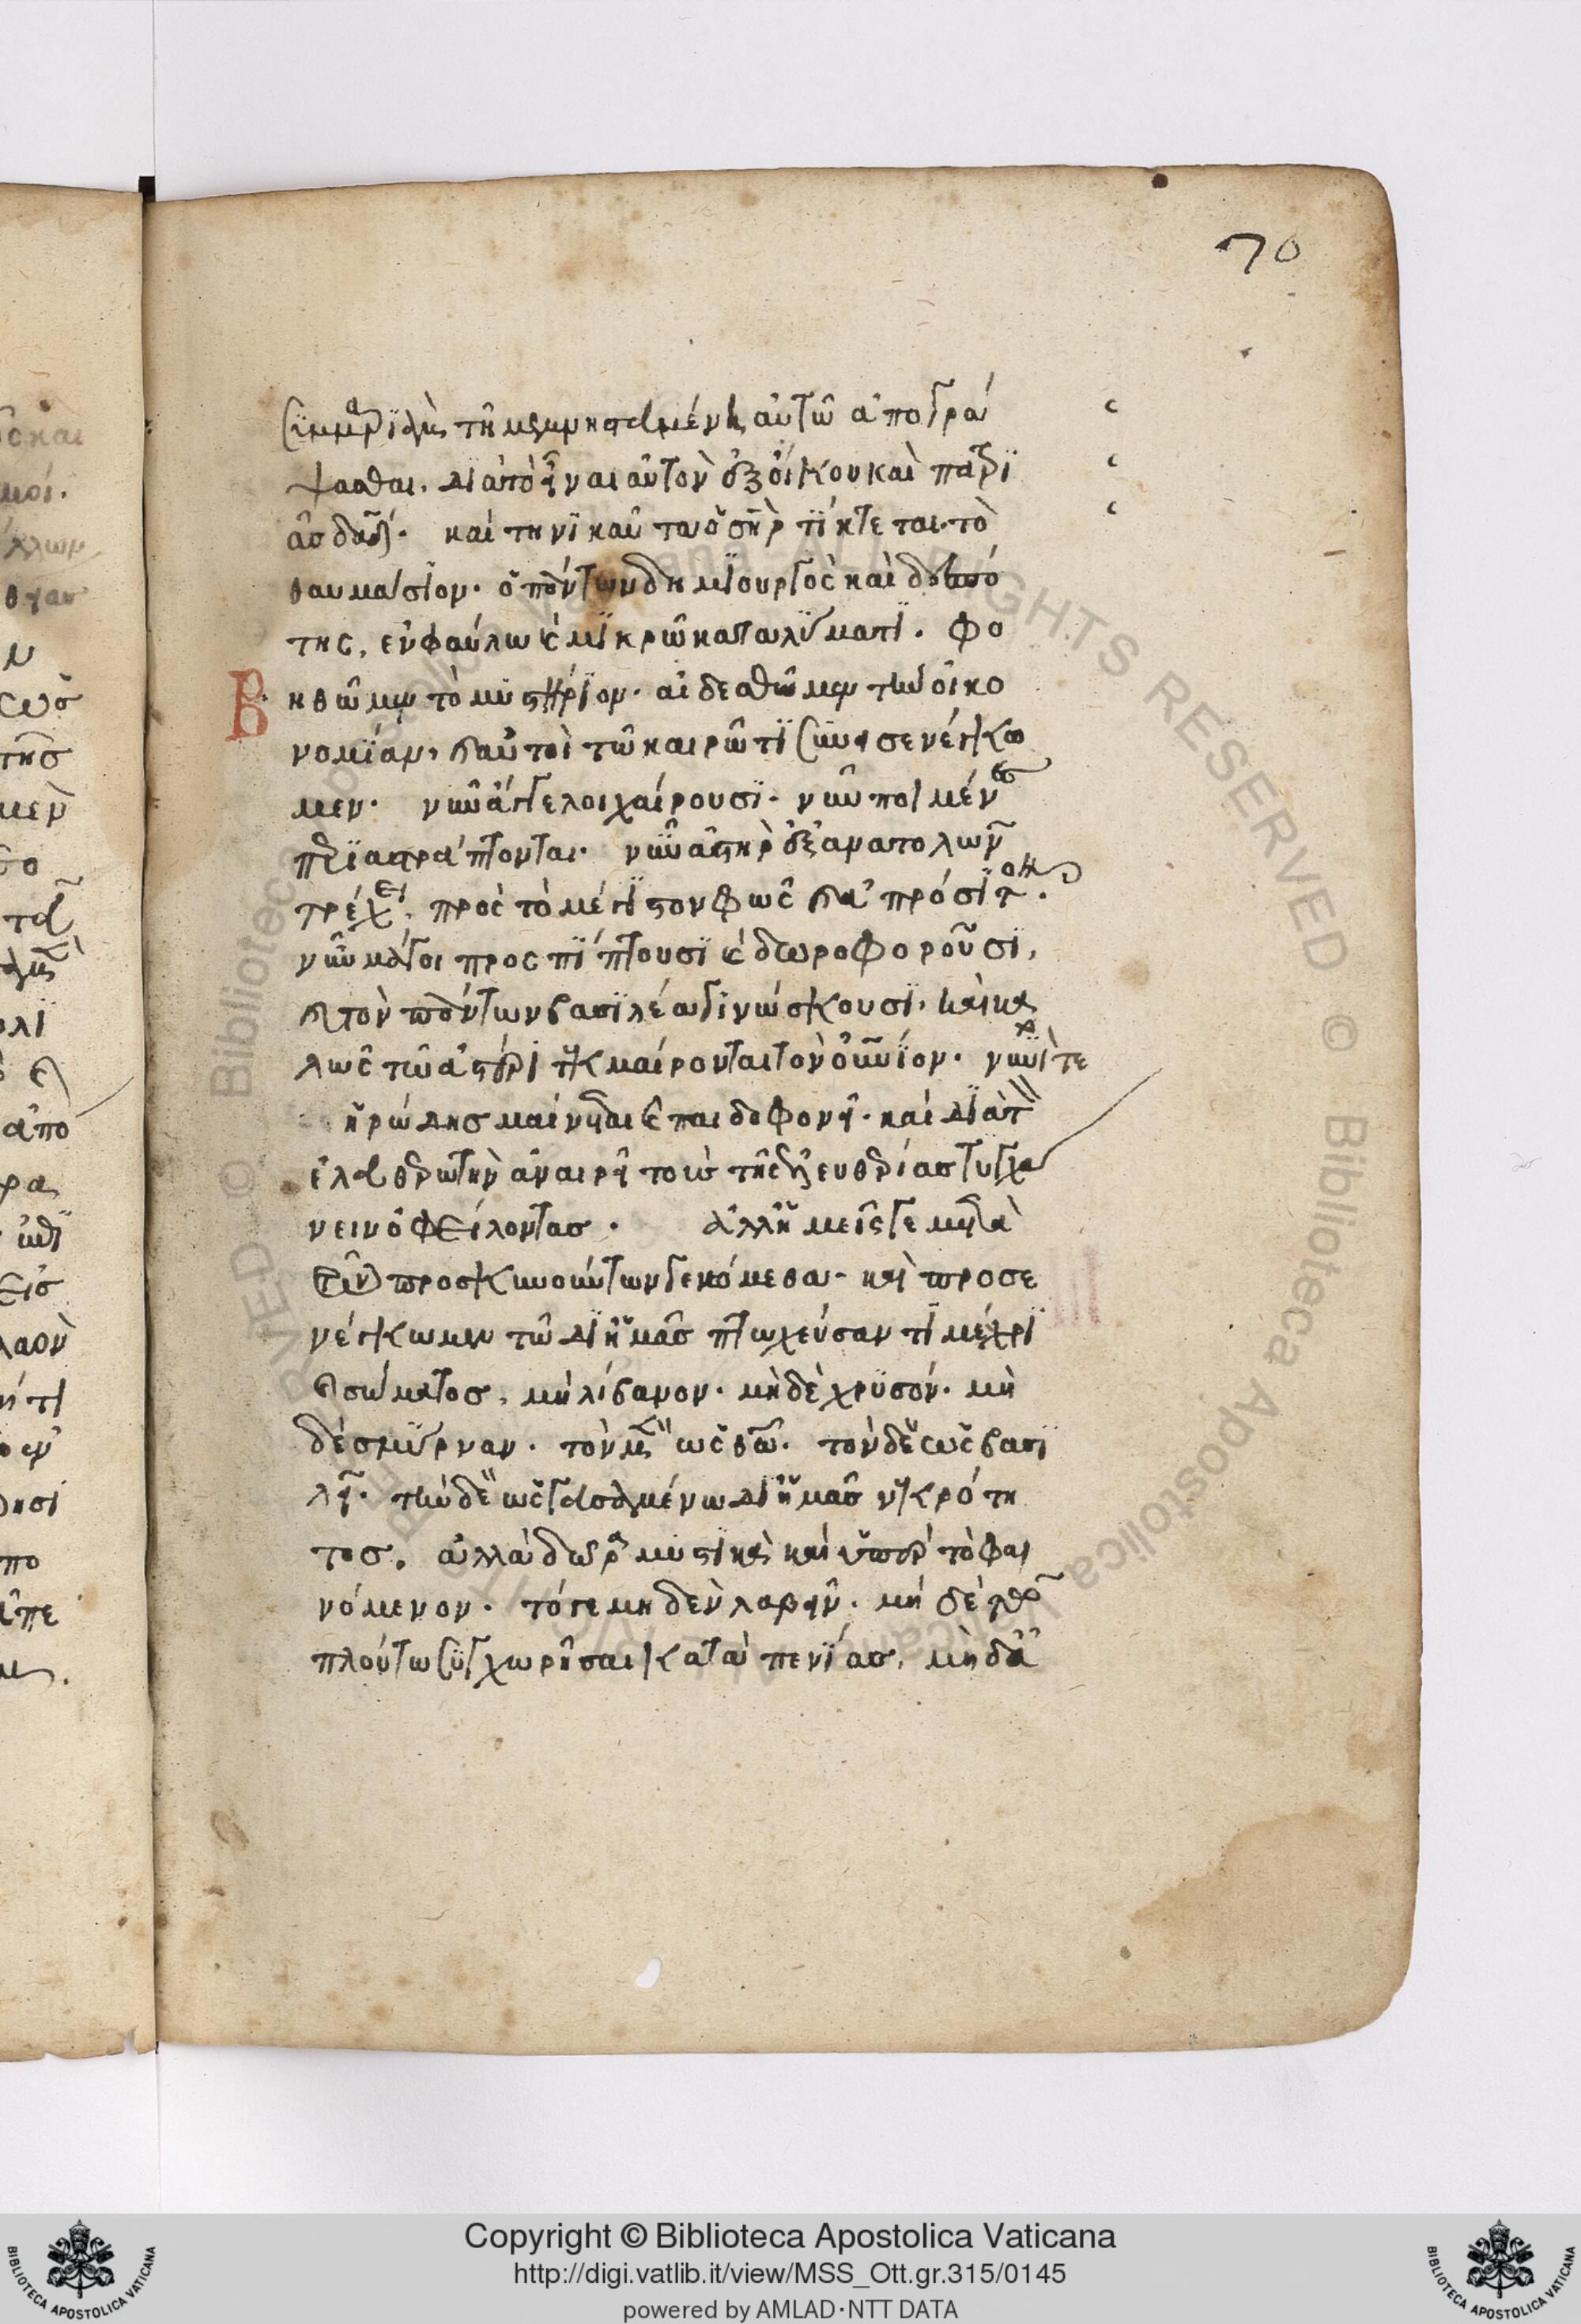 70
σὺν μαριὰμ τῆ μεμνηστευμένη αὐτῶ ἀπογρά
ψασθαι. διὰ τὸ εἶναι αὐτὸν ἐξ οἴκου καὶ πατρι
ᾶσ δαδ. καὶ τηνικαῦτα ὁ σὴρ τίκτεται. τὸ
θαυμάσιον. ὁ πάντων δημιουργὸς καὶ δεσπό
της, ἐν φαύλω καὶ μικρῶ καταλύματι. φο
Β. βηθῶμεν τὸ μυστήριον. αἰδεσθῶμεν τὴν οἰκο
νομίαν, καὶ αὐτοὶ τῶ καιρῶ τὶ συνεισενέγκω
μεν. νῦν ἄγγελοι χαίρουσι. νῦν ποιμένες
περιαστράπτονται. νῦν ἀστὴρ ἐξ ἀνατολῶν
τρέχει, πρὸς τὸ μέγιστον φῶς καὶ ἀπρόσιτον.
νῦν μάγοι προσπίπτουσι καὶ δωροφοροῦσι,
καὶ τὸν πάντων βασιλέα γινώσκουσι, καὶ κα
λῶς τῶ ἀστέρι τεκμαίρονται τὸν οὐνιον. νῦν
ἡρώδησ μαίνεται καὶ παιδοφονεῖ. καὶ διὰ τὸν
ἐλευθερωτὴν ἀναιρεῖ τοὺσ τῆς ἐλευθερίασ τυγχά
νειν ὀφείλοντασ. ἀλλ' ἡμεῖς γε μετὰ
τῶν προσκυνούντων γενώμεθα. καὶ προσε
νέγκωμεν τῶ δι' ἡμᾶσ πτωχεύσαντι μέχρι
καὶ σώματοσ, μὴ λίβανον. μὴ δὲ χρυσόν. μὴ
δὲ σμύρναν. τὸν μὲν ὡς θῶ. τὸν δὲ ὡς βασι
λεῖ. τὴν δὲ ὡς γευσαμένω δι' ἡμᾶσ νεκρότη
τοσ. ἀλλὰ δῶρα μυστικὰ καὶ ὑπὲρ τὸ φαι
νόμενον. τό γε μηδὲν λαβεῖν. μὴ δὲ
πλούτω συγχωρῆσαι κατὰ πενίασ, μὴ δὲ